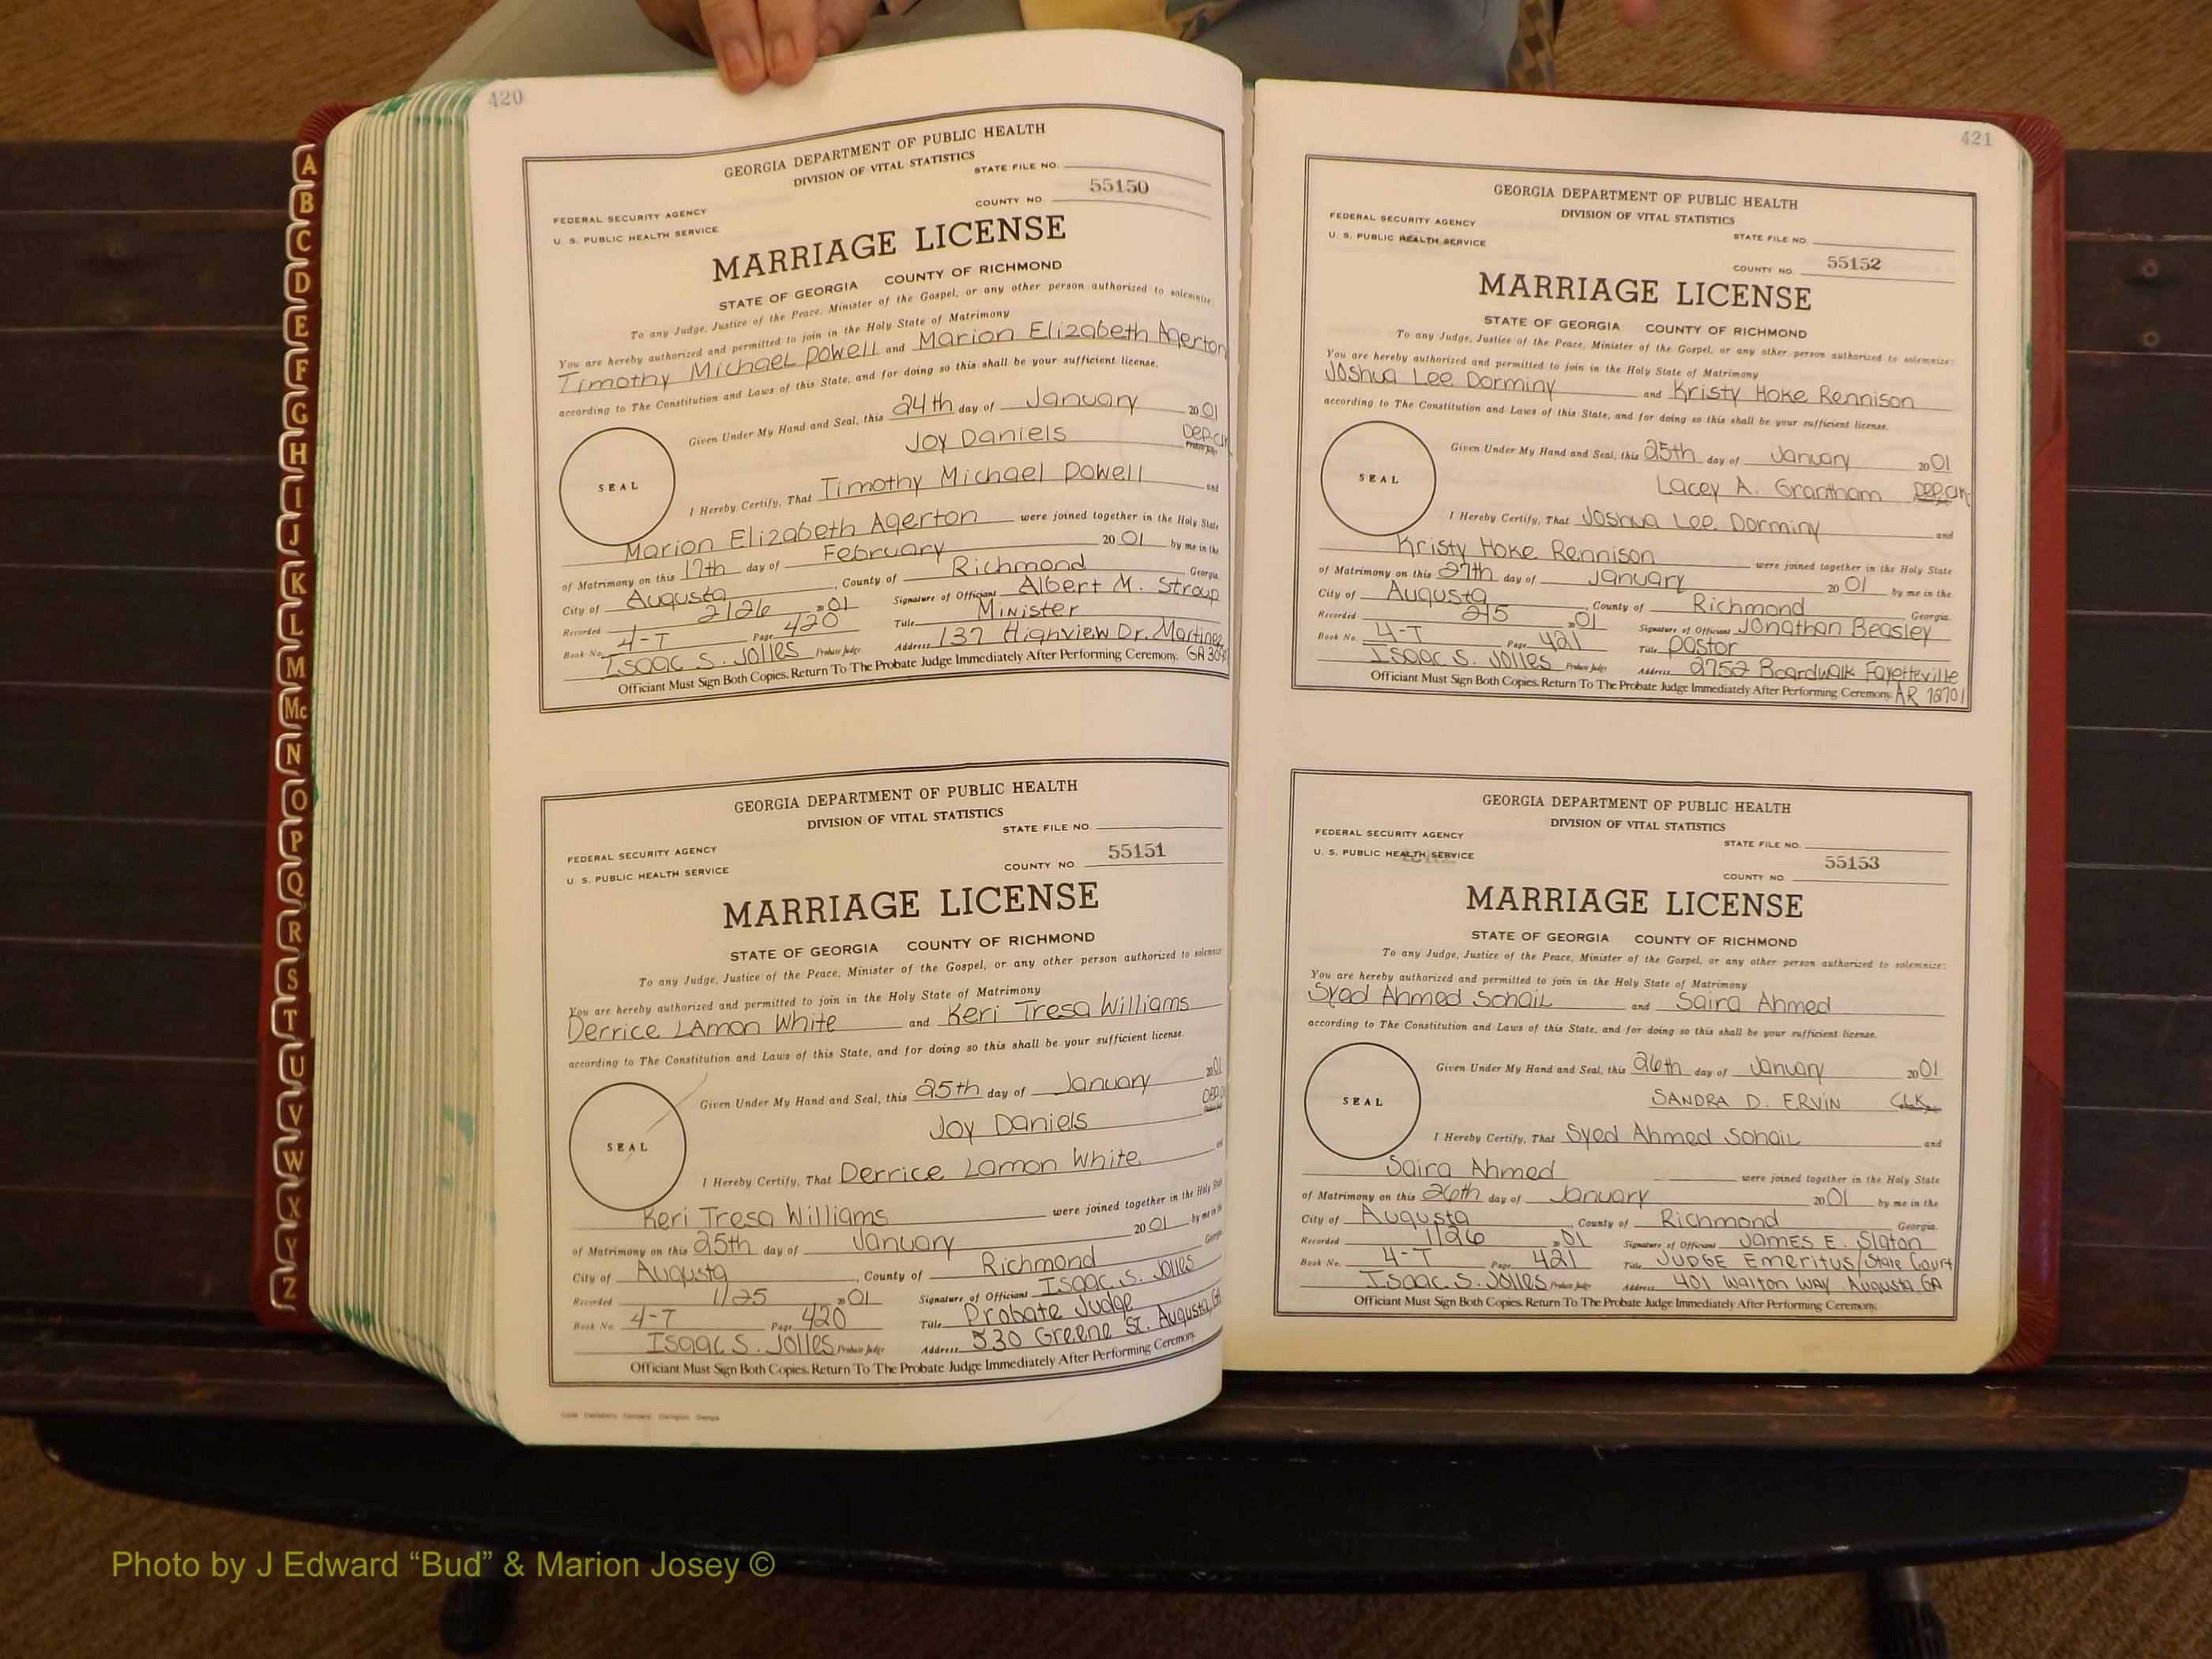 A
B
C
D
E
F
G
H
I
J
K
L
M
Mc
N
O
P
Q
R
S
T
U
V
W
X
Y
Z
420
GEORGIA DEPARTMENT OF PUBLIC HEALTH
DIVISION OF VITAL STATISTICS
STATE FILE NO.
FEDERAL SECURITY AGENCY
U. S. PUBLIC HEALTH SERVICE
COUNTY NO. 55150
MARRIAGE LICENSE
STATE OF GEORGIA COUNTY OF RICHMOND
To any Judge, Justice of the Peace, Minister of the Gospel, or any other person authorized to solemnize:
You are hereby authorized and permitted to join in the Holy State of Matrimony
Timothy Michael Powell and Marion Elizabeth Agerton
according to The Constitution and Laws of this State, and for doing so this shall be your sufficient license.
Given Under My Hand and Seal, this 24th day of January 2001
Joy Daniels Dep.Clk
SEAL
I Hereby Certify, That Timothy Michael Powell and
Marion Elizabeth Agerton were joined together in the Holy State
of Matrimony on this 17th day of February 2001 by me in the
City of Augusta, County of Richmond, Georgia.
Recorded 2/26 2001 Signature of Officiant Albert M. Stroup
Book No. 4-T Page 420 Title Minister
Isaac S. Jolles Probate Judge Address 137 Highview Dr. Martinez
Officiant Must Sign Both Copies. Return To The Probate Judge Immediately After Performing Ceremony.
GEORGIA DEPARTMENT OF PUBLIC HEALTH
DIVISION OF VITAL STATISTICS
STATE FILE NO.
FEDERAL SECURITY AGENCY
U. S. PUBLIC HEALTH SERVICE
COUNTY NO. 55151
MARRIAGE LICENSE
STATE OF GEORGIA COUNTY OF RICHMOND
To any Judge, Justice of the Peace, Minister of the Gospel, or any other person authorized to solemnize
You are hereby authorized and permitted to join in the Holy State of Matrimony
Derrice LAmon White and Keri Tresa Williams
according to The Constitution and Laws of this State, and for doing so this shall be your sufficient license.
Given Under My Hand and Seal, this 25th day of January 2001
Joy Daniels
SEAL
I Hereby Certify, That Derrice Lamon White
Keri Tresa Williams were joined together in the Holy State
of Matrimony on this 25th day of January 2001 by me in the
City of Augusta, County of Richmond Georgia
Recorded 1/25 2001 Signature of Officiant Isaac S. Jolles
Book No. 4-T Page 420 Title Probate Judge
Isaac S. Jolles Probate Judge Address 530 Greene St. Augusta, GA
Officiant Must Sign Both Copies. Return To The Probate Judge Immediately After Performing Ceremony.
421
GEORGIA DEPARTMENT OF PUBLIC HEALTH
DIVISION OF VITAL STATISTICS
FEDERAL SECURITY AGENCY
U. S. PUBLIC HEALTH SERVICE
STATE FILE NO.
COUNTY NO. 55152
MARRIAGE LICENSE
STATE OF GEORGIA COUNTY OF RICHMOND
To any Judge, Justice of the Peace, Minister of the Gospel, or any other person authorized to solemnize:
You are hereby authorized and permitted to join in the Holy State of Matrimony
Joshua Lee Dorminy and Kristy Hoke Rennison
according to The Constitution and Laws of this State, and for doing so this shall be your sufficient license.
Given Under My Hand and Seal, this 25th day of January 2001
Lacey A. Grantham Dep.Clk
SEAL
I Hereby Certify, That Joshua Lee Dorminy and
Kristy Hoke Rennison were joined together in the Holy State
of Matrimony on this 27th day of January 2001 by me in the
City of Augusta, County of Richmond, Georgia.
Recorded 2/5 2001 Signature of Officiant Jonathan Beasley
Book No. 4-T Page 421 Title Pastor
Isaac S. Jolles Probate Judge Address 2752 Boardwalk Fayetteville
Officiant Must Sign Both Copies. Return To The Probate Judge Immediately After Performing Ceremony. AR 72701
GEORGIA DEPARTMENT OF PUBLIC HEALTH
DIVISION OF VITAL STATISTICS
FEDERAL SECURITY AGENCY
U. S. PUBLIC HEALTH SERVICE
STATE FILE NO.
COUNTY NO. 55153
MARRIAGE LICENSE
STATE OF GEORGIA COUNTY OF RICHMOND
To any Judge, Justice of the Peace, Minister of the Gospel, or any other person authorized to solemnize:
You are hereby authorized and permitted to join in the Holy State of Matrimony
Syed Ahmed Sohail and Saira Ahmed
according to The Constitution and Laws of this State, and for doing so this shall be your sufficient license.
Given Under My Hand and Seal, this 26th day of January 2001
SANDRA D. ERVIN CLK
SEAL
I Hereby Certify, That Syed Ahmed Sohail and
Saira Ahmed were joined together in the Holy State
of Matrimony on this 26th day of January 2001 by me in the
City of Augusta, County of Richmond, Georgia.
Recorded 1/26 2001 Signature of Officiant JAMES E. Slaton
Book No. 4-T Page 421 Title JUDGE Emeritus/State Court
Isaac S. Jolles Probate Judge Address 401 Walton Way Augusta, GA
Officiant Must Sign Both Copies. Return To The Probate Judge Immediately After Performing Ceremony.
Photo by J Edward “Bud” & Marion Josey ©